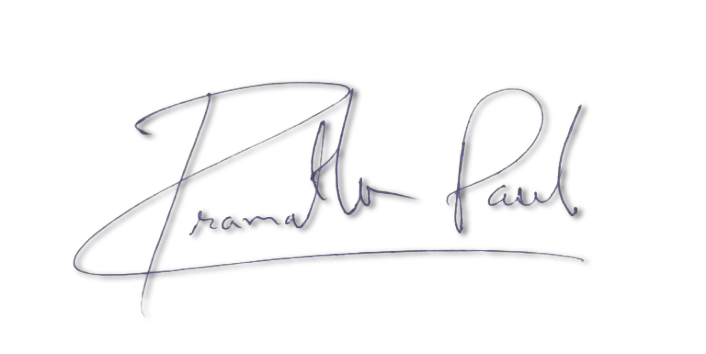 Pramatha Paul